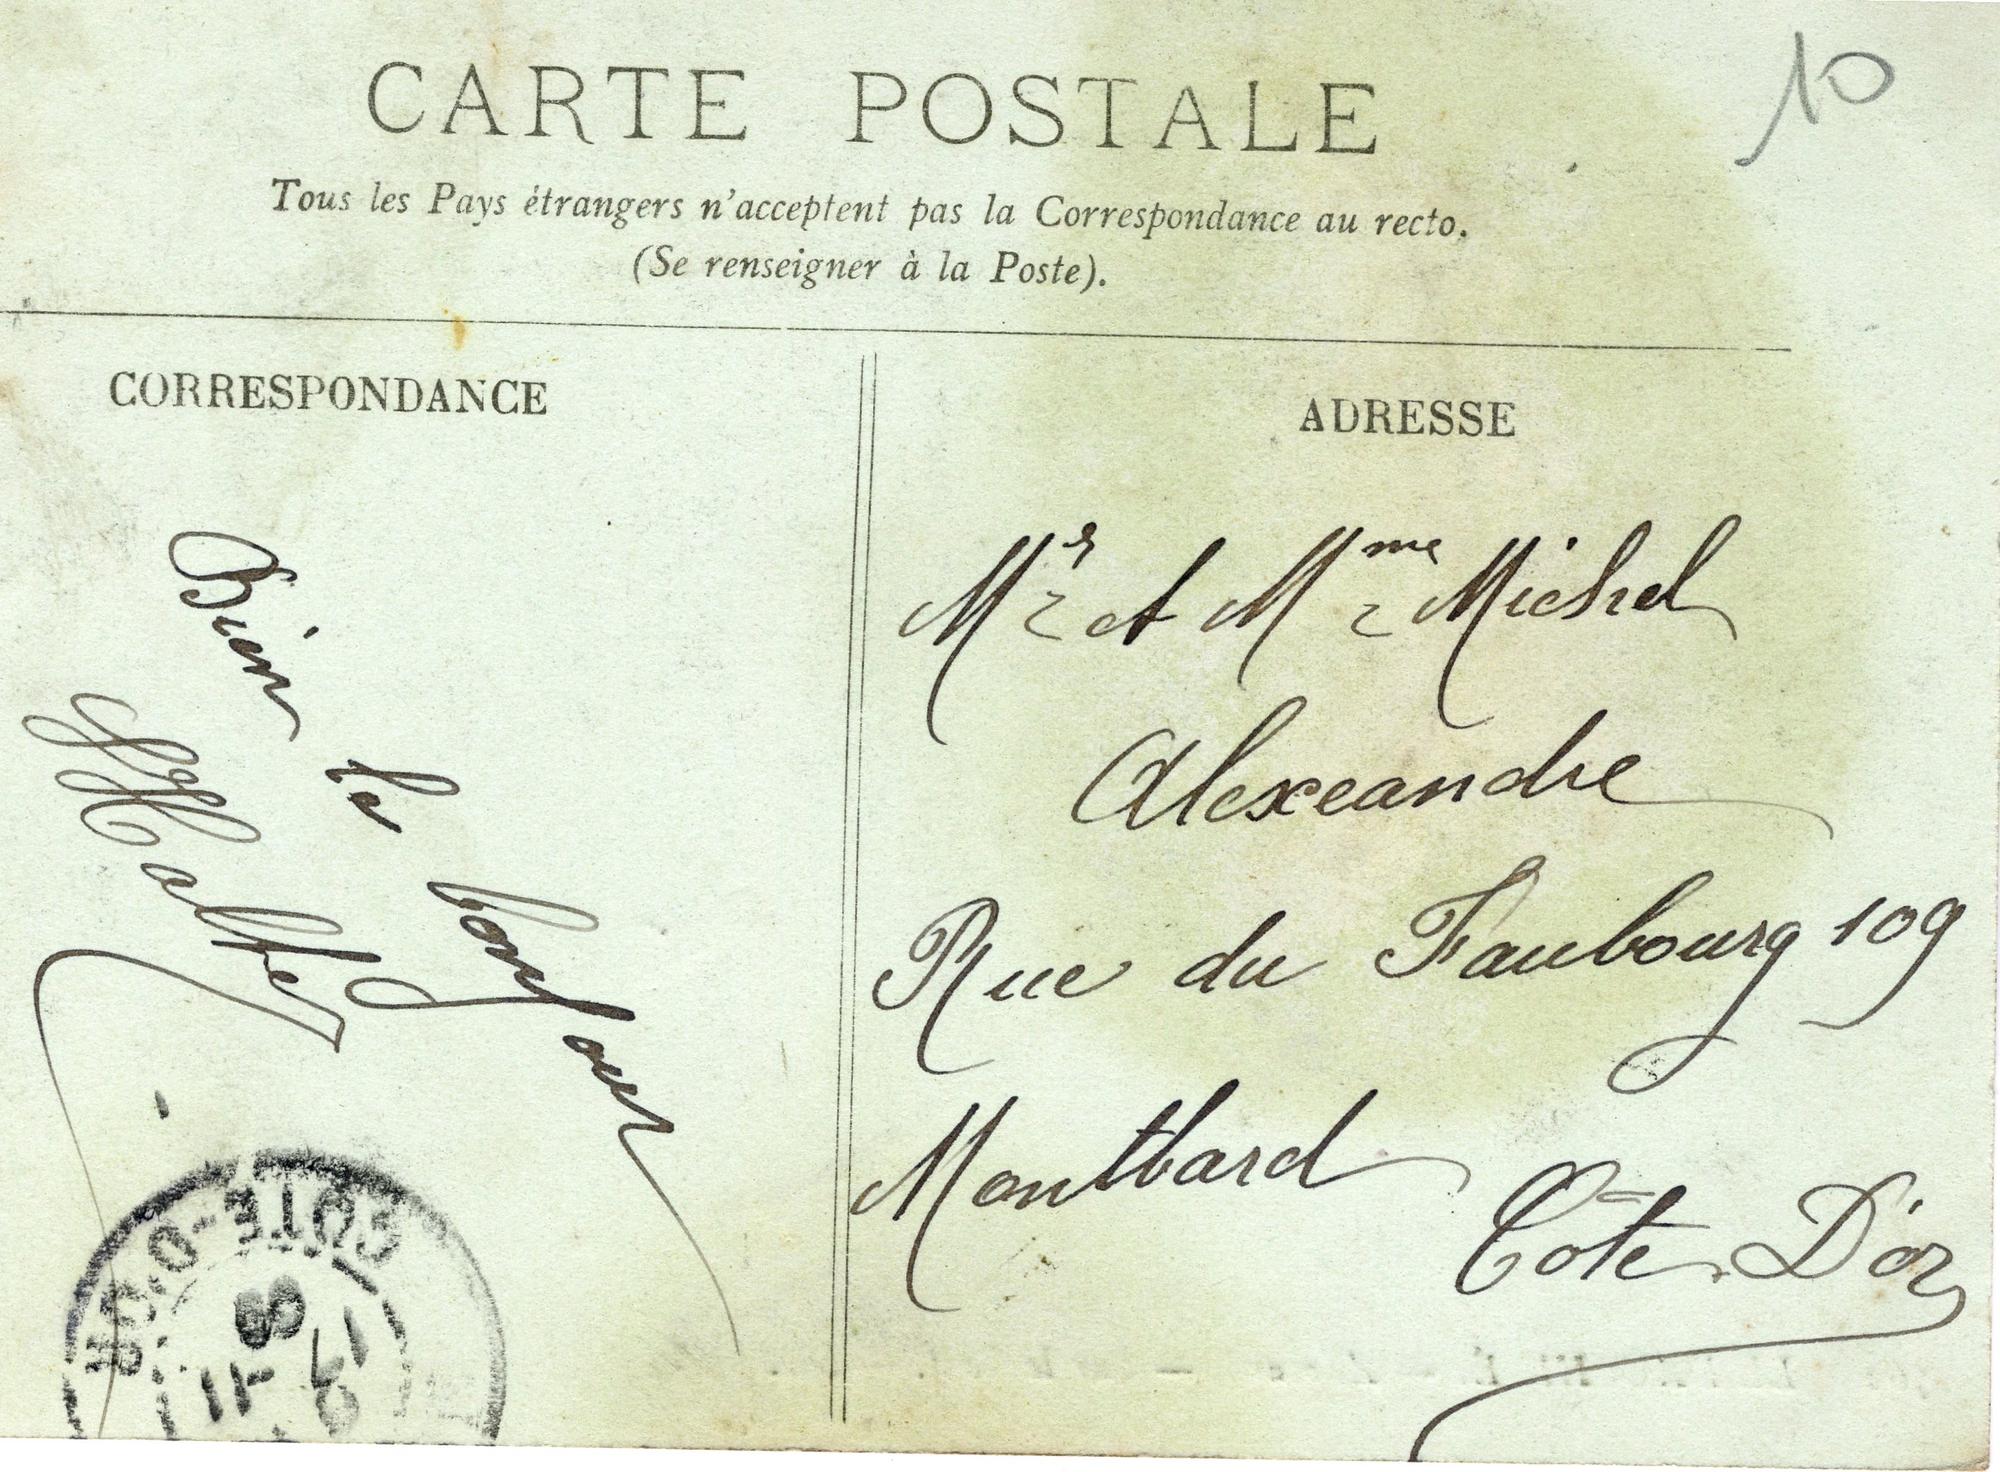 10
CARTE POSTALE
Tous les Pays étrangers n'acceptent pas la Correspondance au recto.
(Se renseigner à la Poste).
CORRESPONDANCE
Bien le bonjour
ADRESSE
Mr et Mme Michel
Alexeandre
Rue du Faubourg 109
Montbard
Côte D'or
CÔTE-D'OR
09